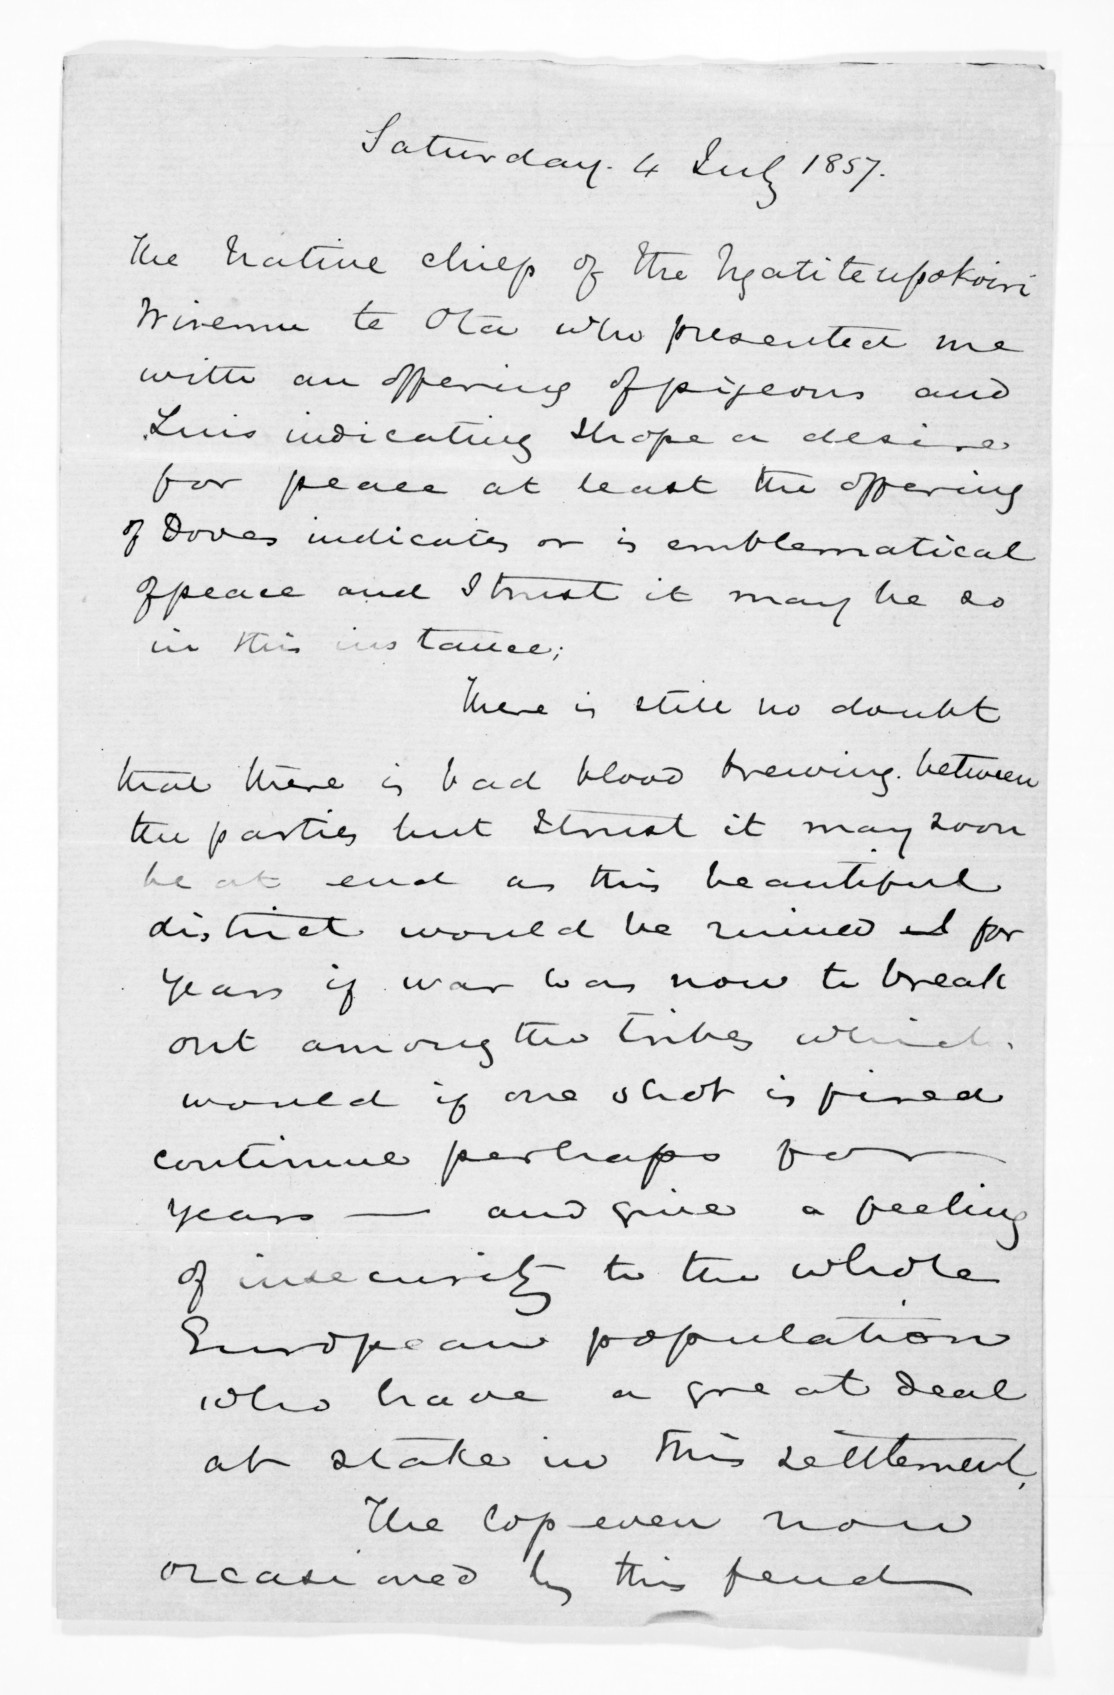 Saturday. 4 July 1857.
The Native chief of the Ngatiteupokoiri
Wiremu te Ota who presented me
with an offering of pigeons and
Tuis indicating I hope a desire
for peace at least the offering
of Doves indicates or is emblematical
of peace and I trust it may be so
in this instance;
There is still no doubt
that there is bad blood brewing. between
the parties but I trust it may soon
be at end as this beautiful
district would be ruined for
years if war was now to break
out among the tribes which
would if one shot is fired
continue perhaps for
years — and give a feeling
of insecurity to the whole
European population
who have a great deal
at stake in this settlement,
The Cop even now
occasioned by this feud